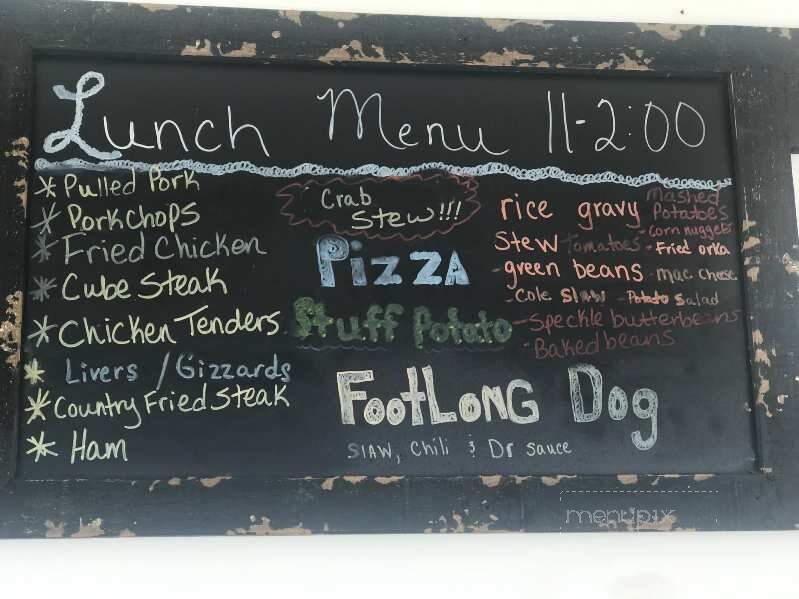 Lunch Menu 11-2:00
* Pulled Pork
* Porkchops
* Fried Chicken
* Cube Steak
* Chicken Tenders
* Livers / Gizzards
* Country Fried Steak
* Ham
Crab
Stew!!!
Pizza
Stuff Potato
FootLong Dog
Slaw, Chili & Dr sauce
rice gravy
Mashed
Potatoes
- corn nuggets
Stew tomatoes - Fried orka
- green beans - mac cheese
- Cole Slaw - Potato Salad
- Speckle butterbeans
- Baked beans
menupix